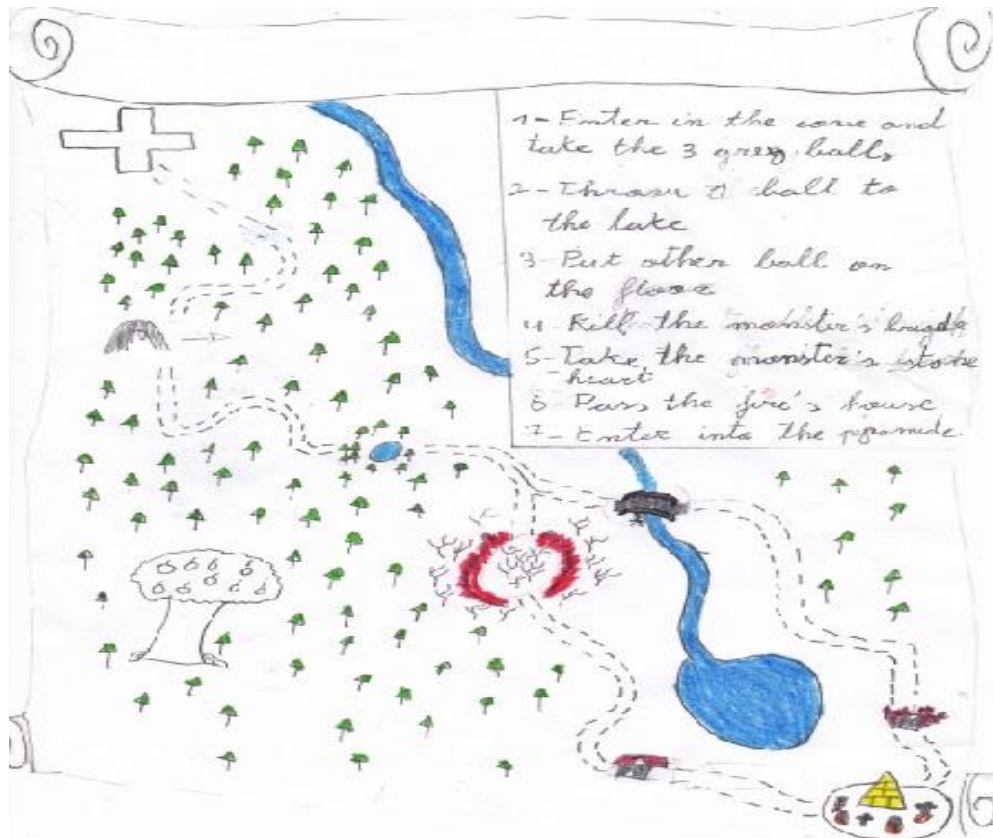 1- Enter in the cave and
take the 3 grey balls
2- Throw a ball to
the lake
3- Put other ball on
the floor
4- Kill the monster's
5- Take the monster's stone
heart
6- Pass the fire's house
7- Enter into the piramide